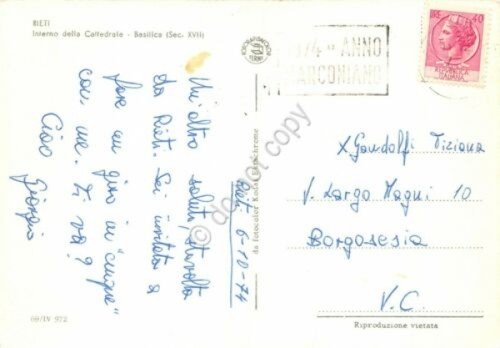 RIETI
Interno della Cattedrale - Basilica (Sec. XVII)
1974 - ANNO
MARCONIANO
LIRE 40
Un'altro saluto, stavolta
da Rieti. Sei invitata a
fare un giro in "cinque"
con me. Ti va?
Ciao
Giorgio
Rieti 6-10-74
da fotocolor Kodak Ektachrome
X Gandolfi Tiziana
V. Largo Magni 10
Borgosesia
V.C.
69/IV 972
Riproduzione vietata
do not copy